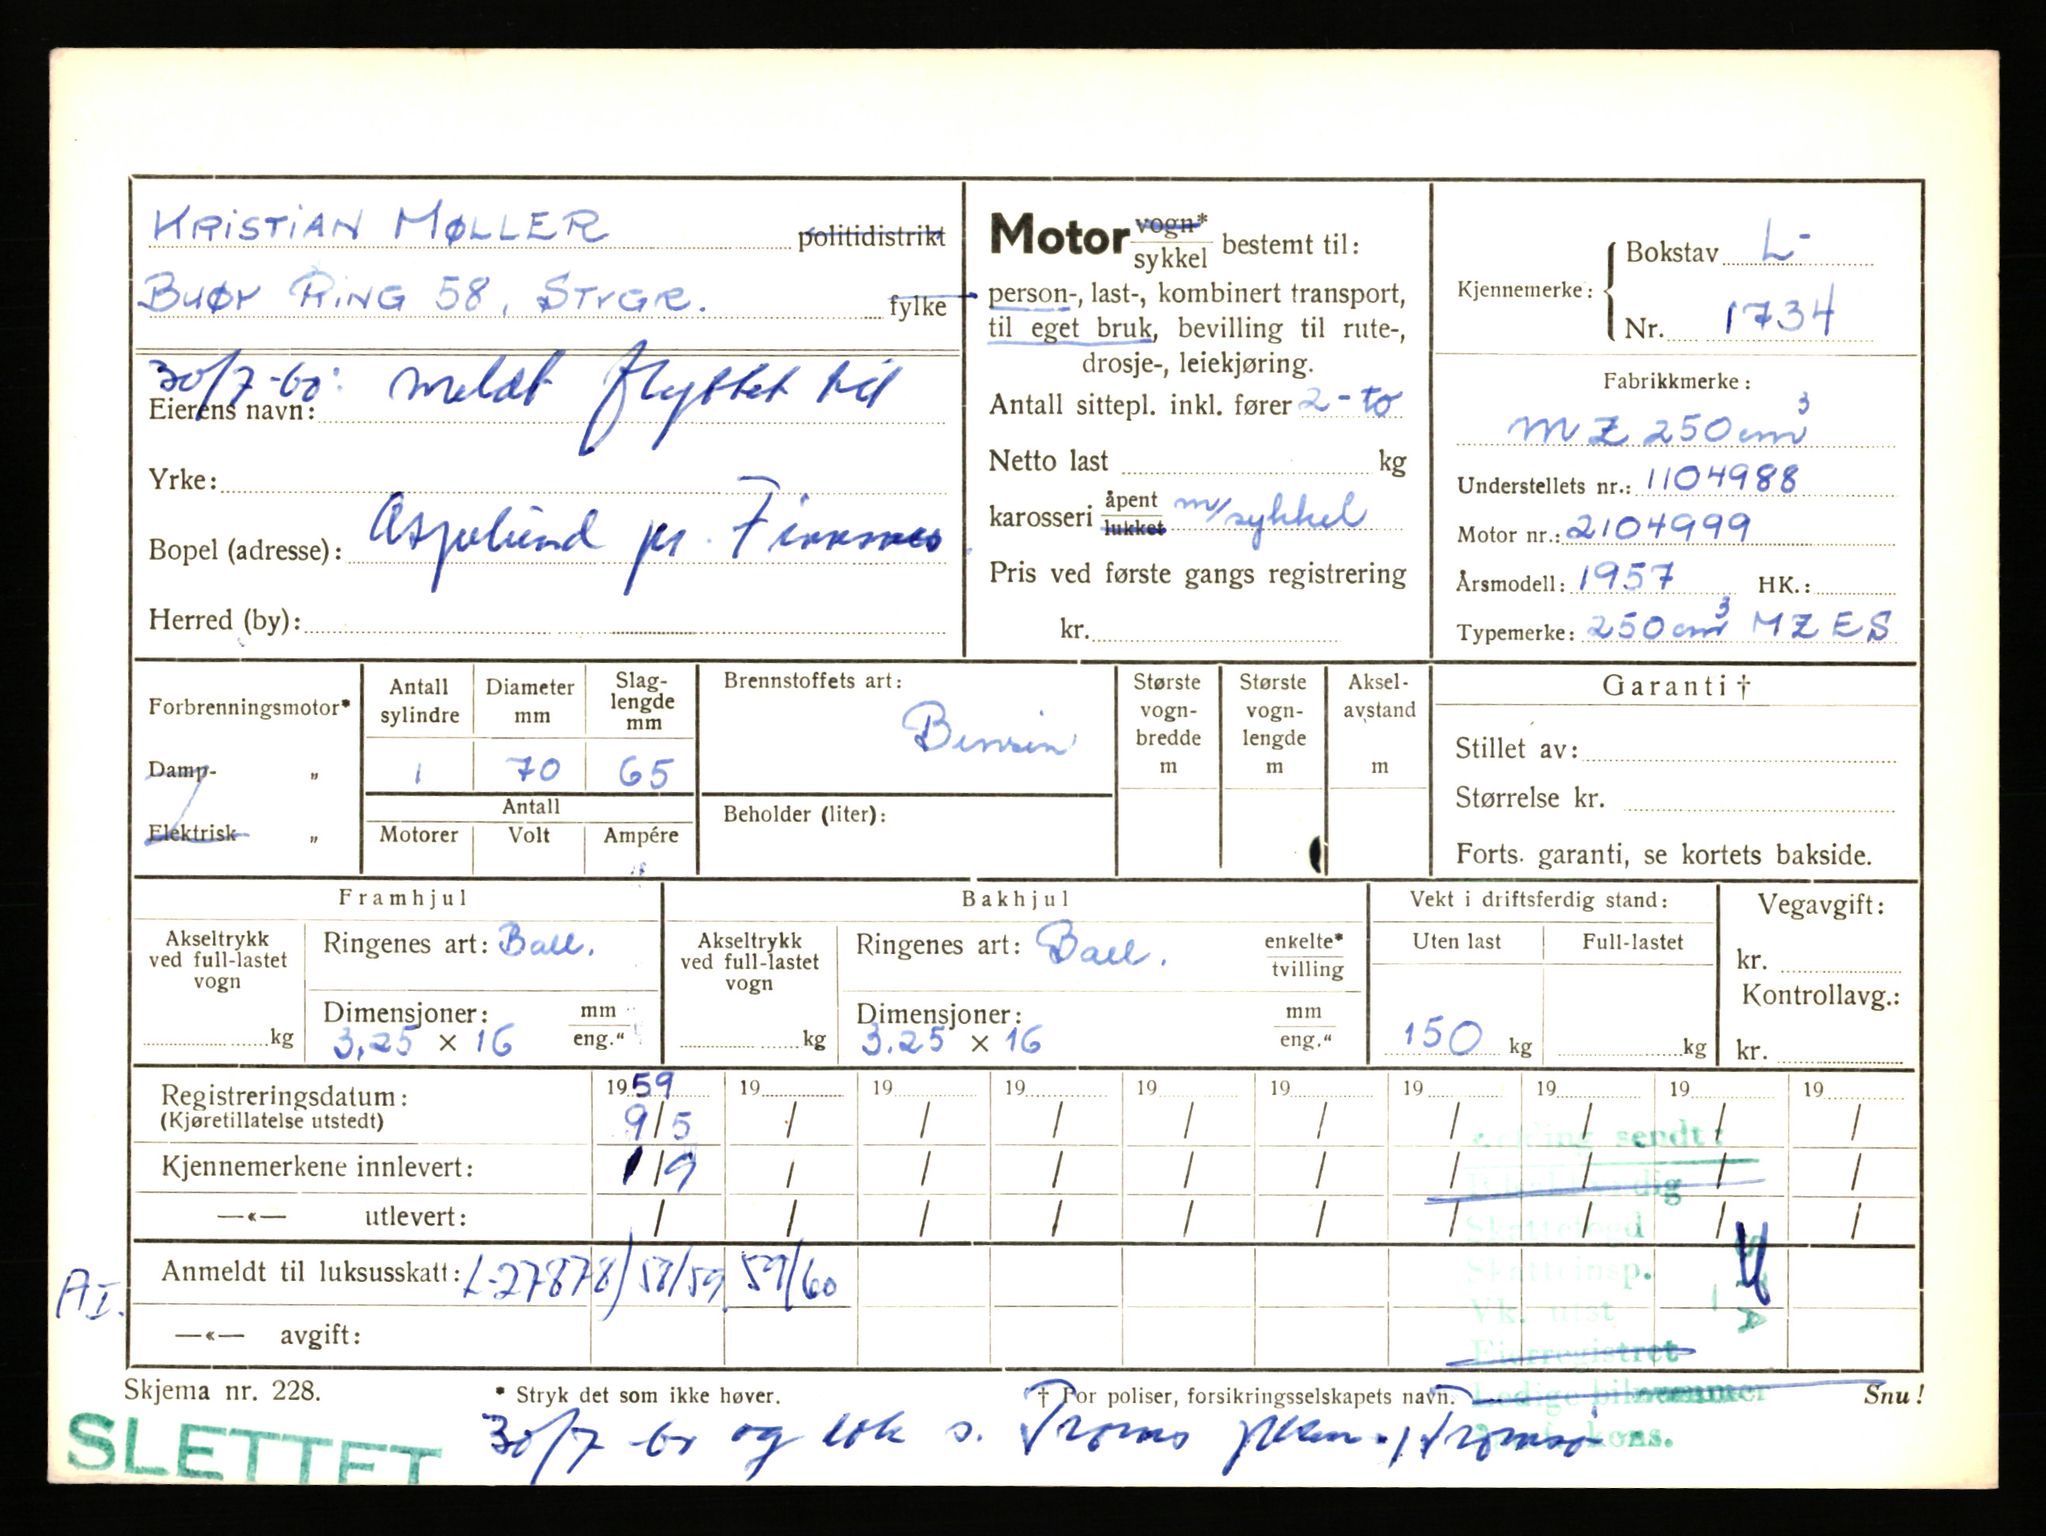 KRISTIAN MØLLER politidistrikt
BUØY RING 58, STVGR. fylke
30/7-60: meldt flyttet til
Eierens navn:
Yrke:
Bopel (adresse): Aspelund pr. Finnsnes
Herred (by):
Motor vogn* sykkel bestemt til:
person-, last-, kombinert transport,
til eget bruk, bevilling til rute-,
drosje-, leiekjøring.
Antall sittepl. inkl. fører 2-to
Netto last kg
karosseri åpent lukket m/sykkel
Pris ved første gangs registrering
kr.
Kjennemerke: { Bokstav L-
Nr. 1734
Fabrikkmerke:
MZ 250cm³
Understellets nr.: 1104988
Motor nr.: 2104999
Årsmodell: 1957 HK.:
Typemerke: 250cm³ MZ ES
Forbrenningsmotor*
Damp- „
Elektrisk „
Antall sylindre
Diameter mm
Slag-lengde mm
1 70 65
Antall
Motorer Volt Ampére
Brennstoffets art:
Bensin
Beholder (liter):
Største vogn-bredde m
Største vogn-lengde m
Aksel-avstand m
Garanti †
Stillet av:
Størrelse kr.
Forts. garanti, se kortets bakside.
Framhjul
Akseltrykk ved full-lastet vogn
kg
Ringenes art: Ball.
Dimensjoner: mm eng.“
3,25 × 16
Bakhjul
Akseltrykk ved full-lastet vogn
kg
Ringenes art: Ball. enkelte* tvilling
Dimensjoner: mm eng.“
3.25 × 16
Vekt i driftsferdig stand:
Uten last Full-lastet
150 kg kg
Vegavgift:
kr.
Kontrollavg.:
kr.
Registreringsdatum: 1959 19 19 19 19 19 19 19 19 19
(Kjøretillatelse utstedt) 9/5 / / / / / / / / /
Kjennemerkene innlevert: 1/9 / / / / / / / / /
—«— utlevert: / / / / / / / / / /
Anmeldt til luksusskatt: L-27878) 58/59 59/60
AI.
—«— avgift:
Melding sendt:
Skattefogd
Skatteinsp.
Vk. utst
Eierregistret
Ledige bilnummer
kons.
Skjema nr. 228.
* Stryk det som ikke høver.
† For poliser, forsikringsselskapets navn.
Snu!
SLETTET
30/7-60 og lok s. Troms pkam., Tromsø